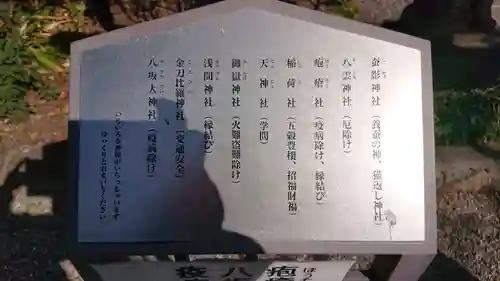 蚕影神社（養蚕の神、猫返し神社）
八雲神社（厄除け）
疱瘡社（疫病除け、縁結び）
稲荷社（五穀豊穣、招福財福）
天神社（学問）
御嶽神社（火難盗難除け）
浅間神社（縁結び）
金刀比羅神社（交通安全）
八坂大神社（疫病除け）
いろいろな神様がいらっしゃいます
ゆっくりとお参りください